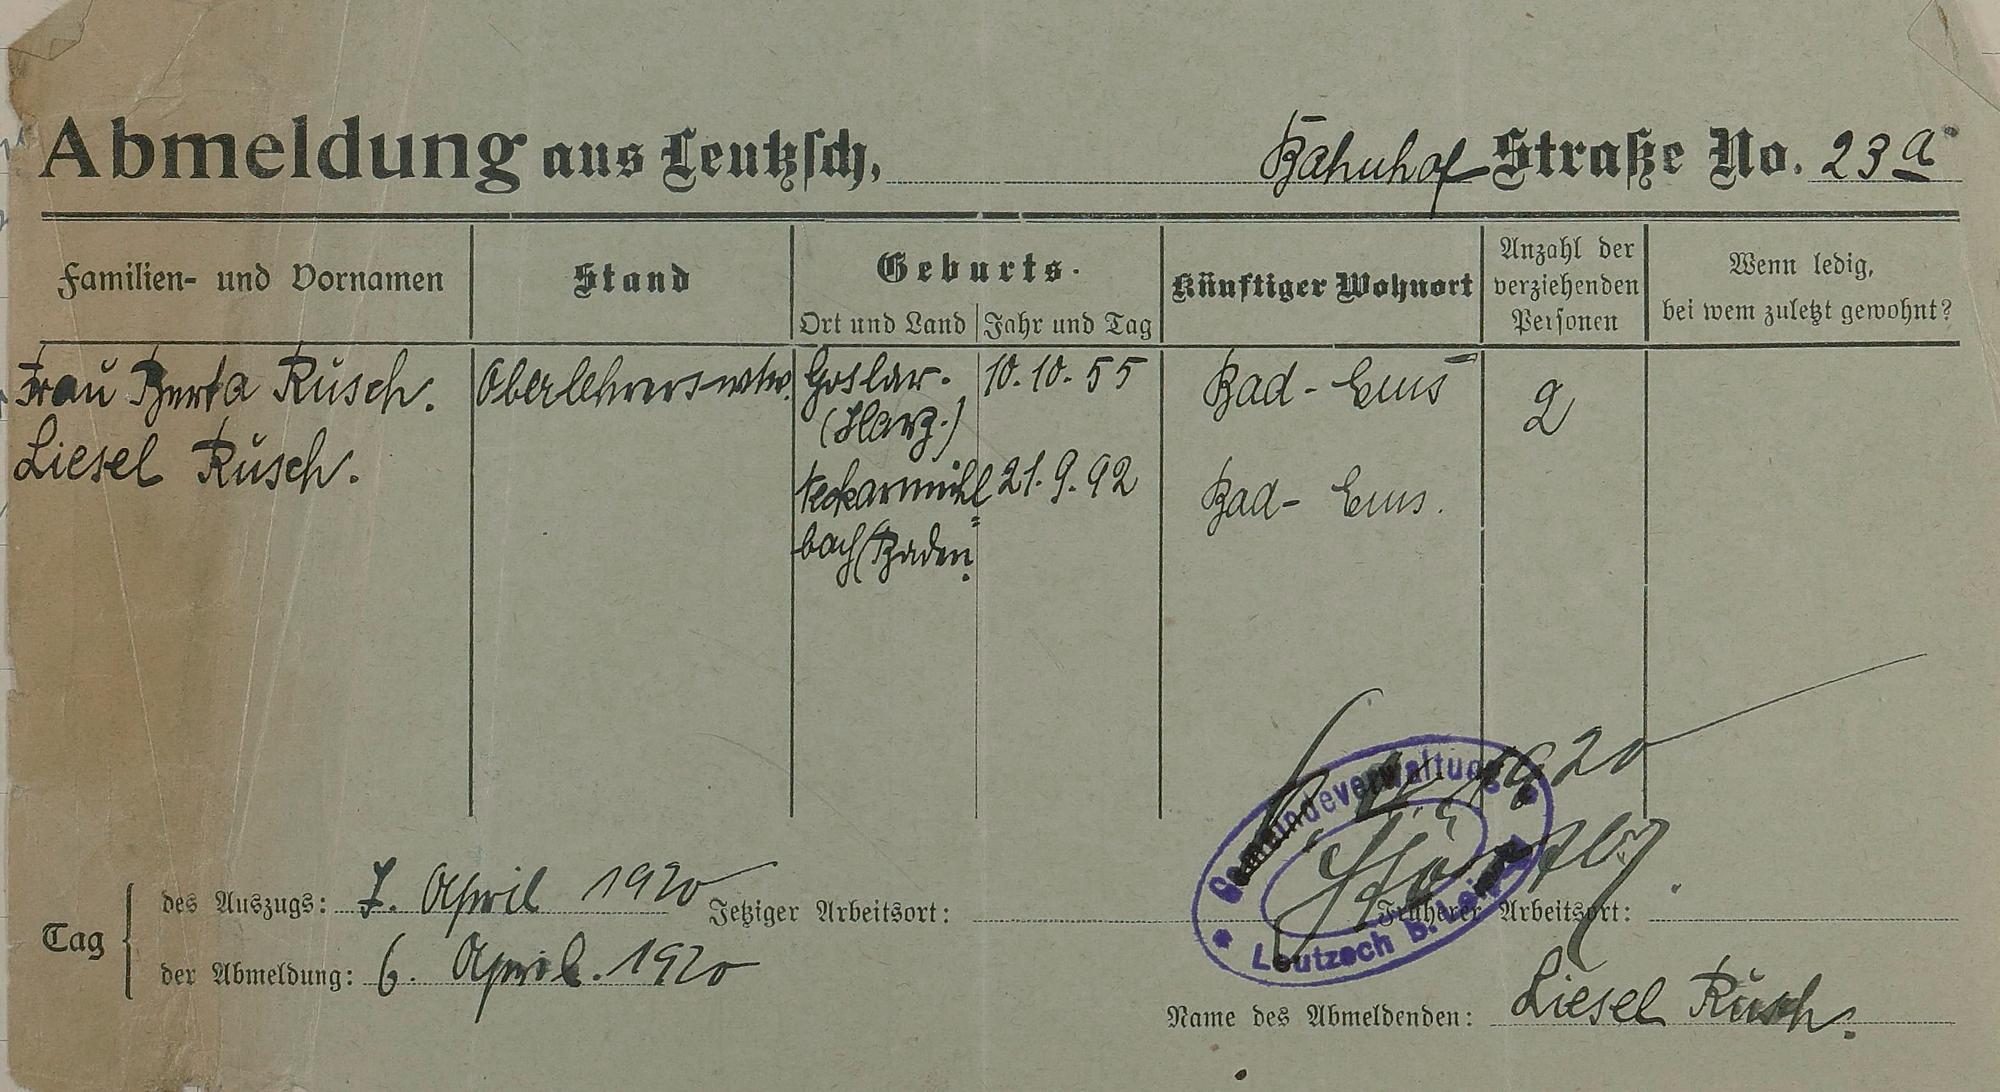 Abmeldung aus Leutzsch, Bahnhof Straße No. 23 a
Familien- und Vornamen
Stand
Geburts-
Ort und Land
Jahr und Tag
Künftiger Wohnort
Anzahl der
verziehenden
Personen
Wenn ledig,
bei wem zuletzt gewohnt?
Frau Berta Rusch. Oberlehrerswtw. Goslar. 10. 10. 55 Bad-Ems 2
(Harz.)
Liesel Rusch. Neckarmühl= 21. 9. 92 Bad-Ems.
bach (Baden.
1920
Gemeindeverwaltung
Leutzsch b. Leipzig
Tag
des Auszugs: 7. April 1920 Jetziger Arbeitsort: Früherer Arbeitsort:
der Abmeldung: 6. April. 1920
Name des Abmeldenden: Liesel Rusch.